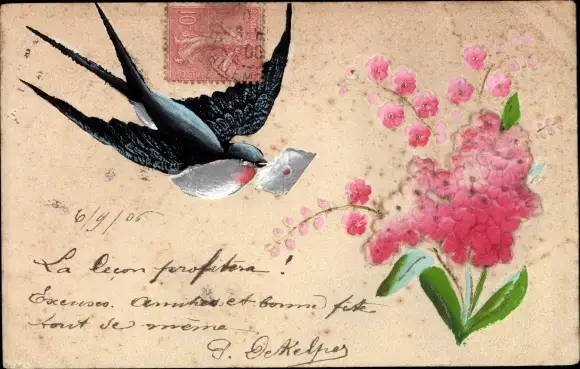 10
6/9/06
La leçon profitera !
Excuses. Amitiés et bonne fête
tout de même